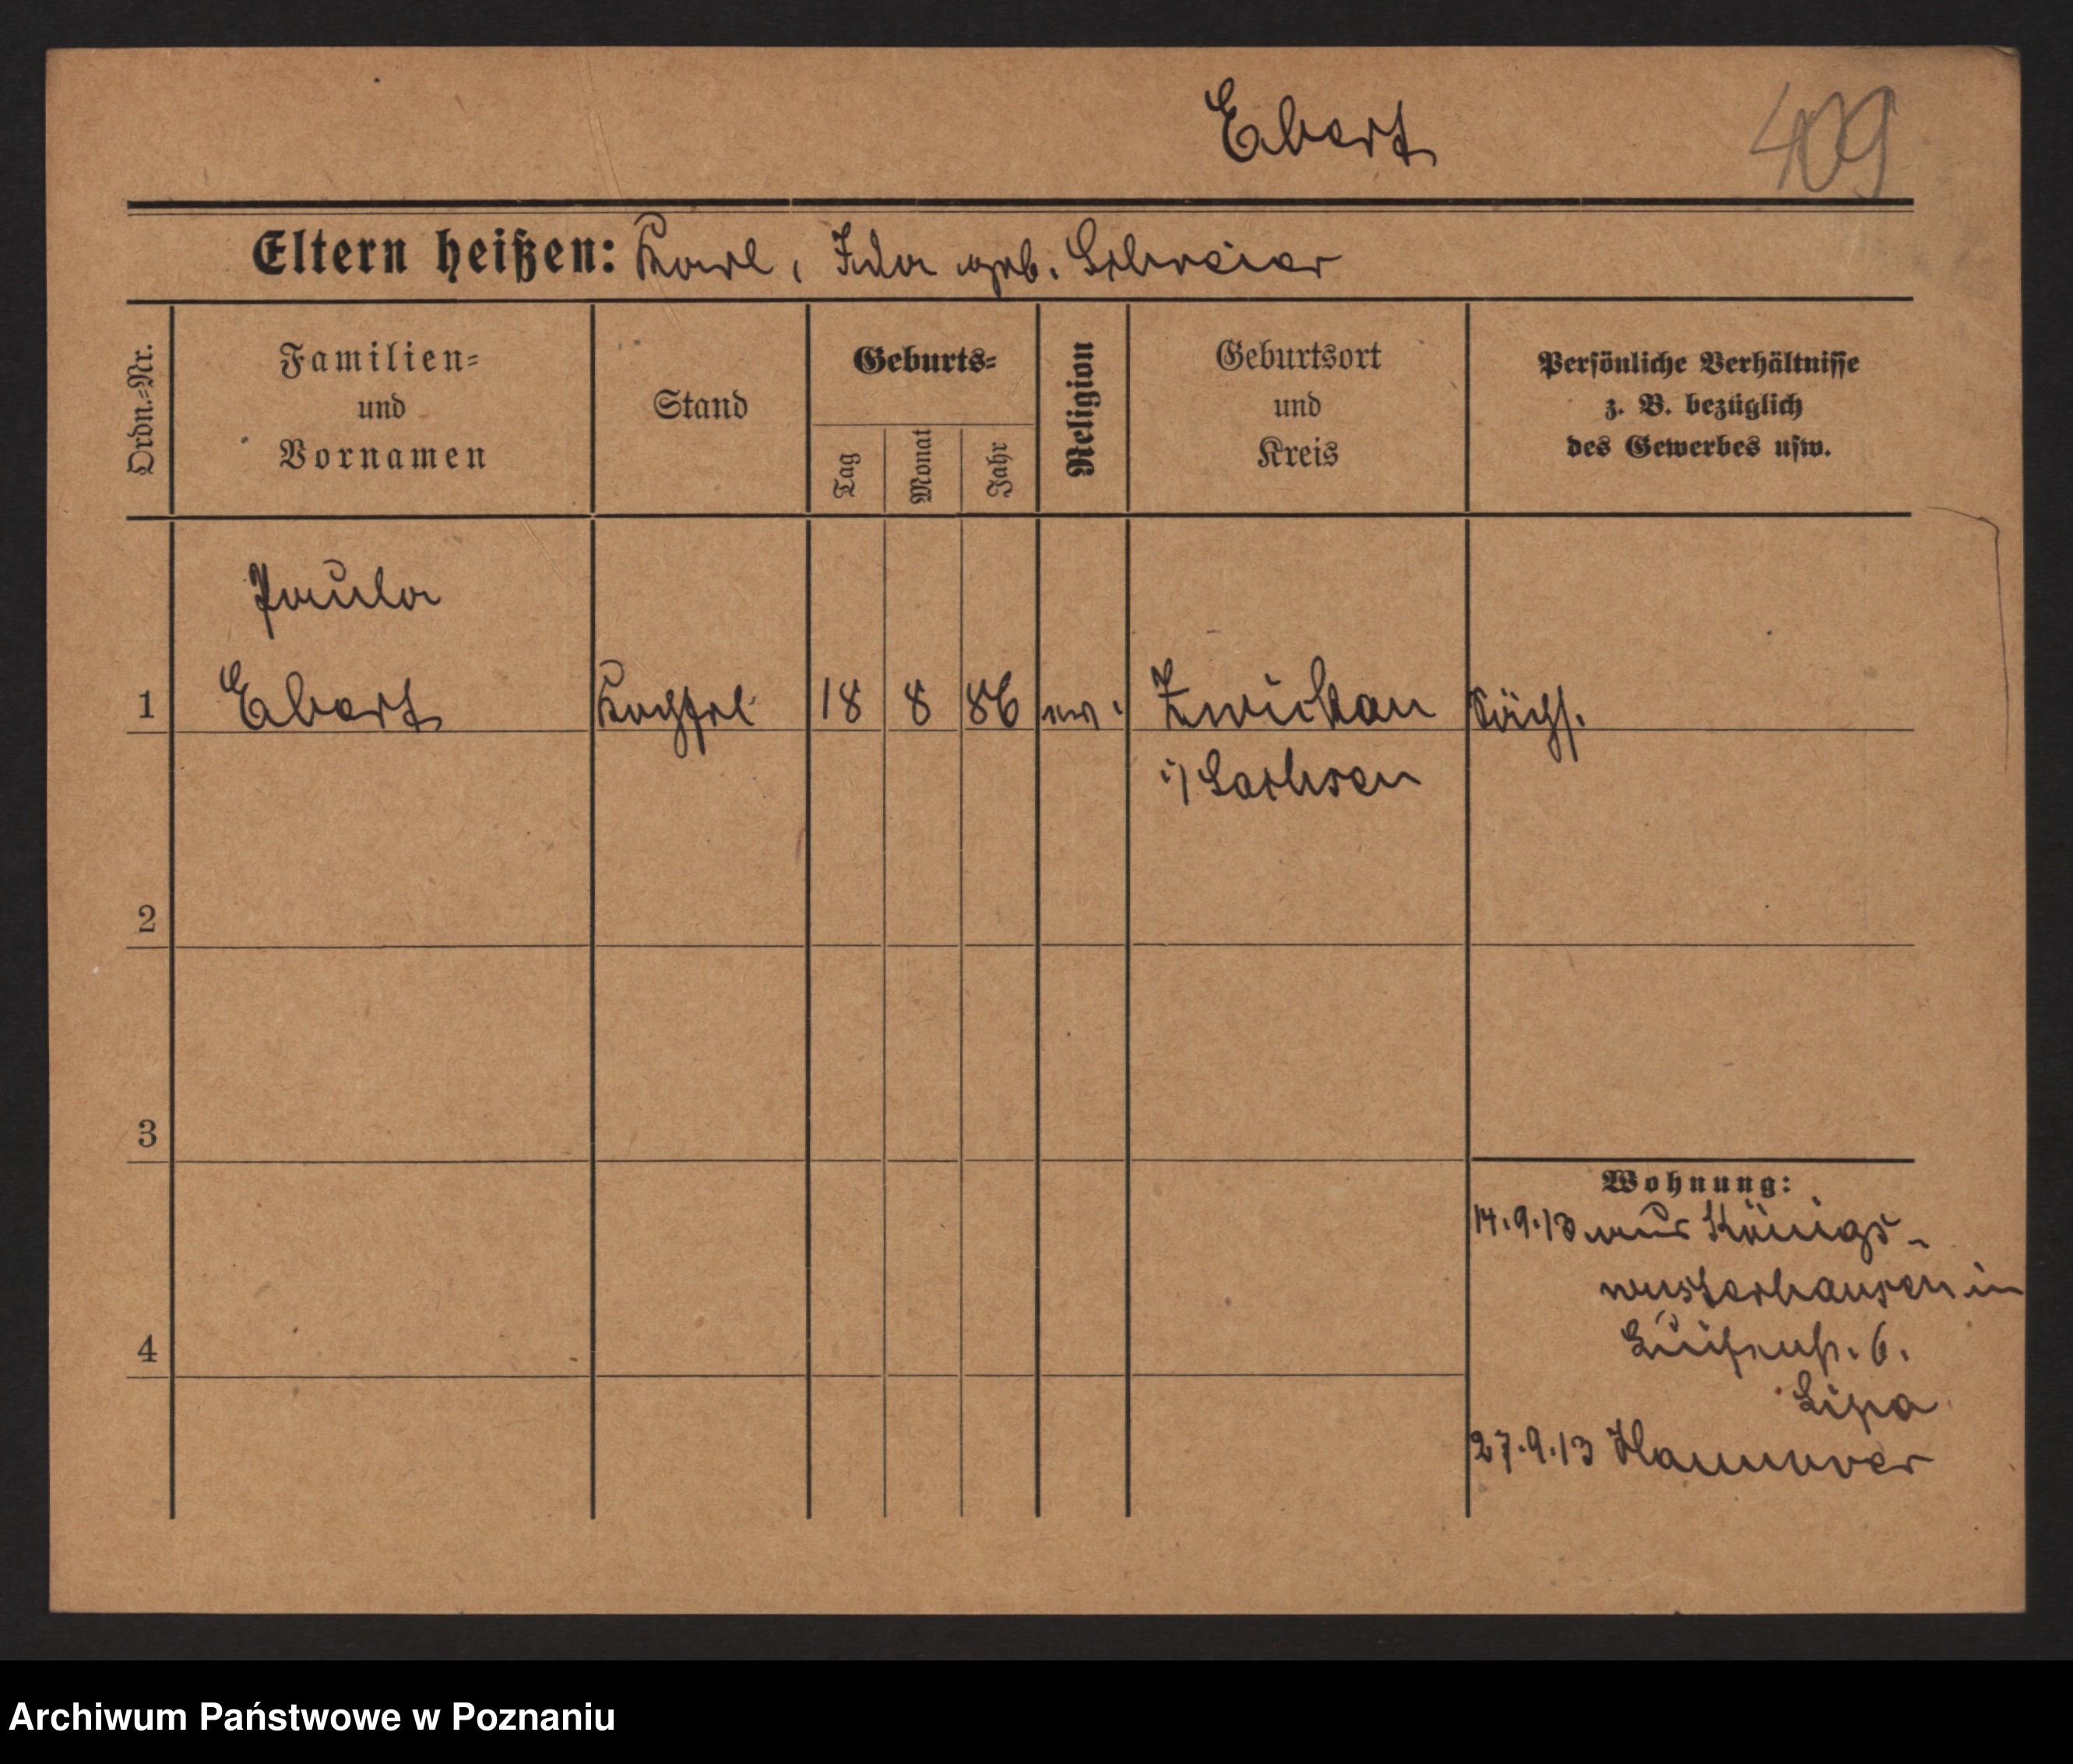 Ebert
409
Eltern heißen: Karl, Ida geb. Schreier
Ordn.-Nr.
Familien-
und
Vornamen
Stand
Geburts-
Tag
Monat
Jahr
Religion
Geburtsort
und
Kreis
Persönliche Verhältnisse
z. B. bezüglich
des Gewerbes usw.
Paula
1 Ebert 18 8 86 ev. Zwickau Sächs.
i/ Sachsen
2
3
4
Wohnung:
14.9.13 aus Königs-
wusterhausen in
Luisenstr. 6.
27.9.13 Hannover
Archiwum Państwowe w Poznaniu